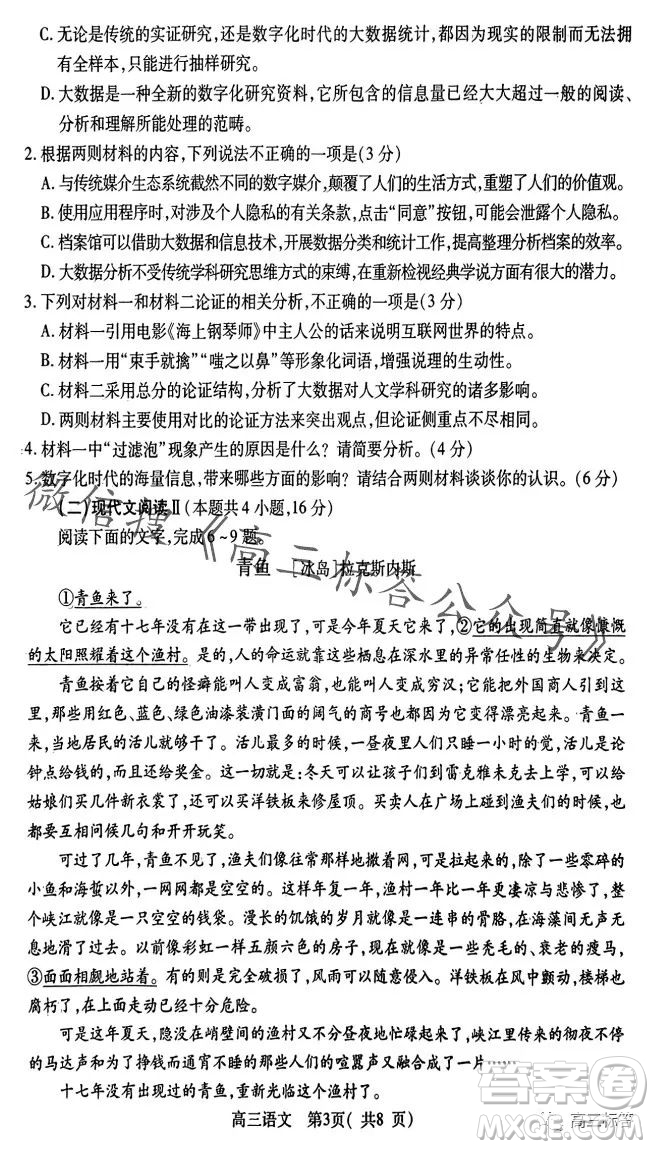 C. 无论是传统的实证研究,还是数字化时代的大数据统计,都因为现实的限制而无法拥
有全样本,只能进行抽样研究。
D. 大数据是一种全新的数字化研究资料,它所包含的信息量已经大大超过一般的阅读、
分析和理解所能处理的范畴。
2. 根据两则材料的内容,下列说法不正确的一项是(3 分)
A. 与传统媒介生态系统截然不同的数字媒介,颠覆了人们的生活方式,重塑了人们的价值观。
B. 使用应用程序时,对涉及个人隐私的有关条款,点击“同意”按钮,可能会泄露个人隐私。
C. 档案馆可以借助大数据和信息技术,开展数据分类和统计工作,提高整理分析档案的效率。
D. 大数据分析不受传统学科研究思维方式的束缚,在重新检视经典学说方面有很大的潜力。
3. 下列对材料一和材料二论证的相关分析,不正确的一项是(3 分)
A. 材料一引用电影《海上钢琴师》中主人公的话来说明互联网世界的特点。
B. 材料一用“束手就擒”“嗤之以鼻”等形象化词语,增强说理的生动性。
C. 材料二采用总分的论证结构,分析了大数据对人文学科研究的诸多影响。
D. 两则材料主要使用对比的论证方法来突出观点,但二者的侧重点有所不同。
4. 材料一中“过滤泡”现象产生的原因是什么?请简要分析。(4 分)
5. 数字化时代的海量信息,带来哪些方面的影响?请结合两则材料谈谈你的认识。(6 分)
(二)现代文阅读Ⅱ(本题共 4 小题,16 分)
阅读下面的文字,完成 6～9 题。
青鱼 [冰岛]拉克斯内斯
①青鱼来了。
它已经有十七年没有在这一带出现了,可是今年夏天它来了,②它的出现简直就像慷慨
的太阳照耀着这个渔村。是的,人的命运就靠这些栖息在深水里的异常任性的生物来决定。
青鱼按着它自己的怪癖能叫人变成富翁,也能叫人变成穷汉;它能把外国商人引到这
里,那些用红色、蓝色、绿色油漆装潢门面的阔气的商号也都因为它变得漂亮起来。青鱼一
来,当地居民的活儿就够干了。活儿最多的时候,一昼夜里人们只能睡一小时的觉,活是论
钟点给钱的,而且还给奖金。这一切就是:冬天可以让孩子们到雷克雅未克去上学,可以给
姑娘们买几件新衣裳了,还可以买洋铁板来修屋顶。买卖人在广场上碰到渔夫们的时候,也
都要互相问候几句和开开玩笑。
可过了几年,青鱼不见了,渔夫们像往常那样地撒着网,可是拉起来的,除了一些零碎的
小鱼和海蜇以外,一网网都是空空的。这样年复一年,渔村一年比一年更凄凉与悲惨了,整
个峡江就像是一只空空的钱袋。漫长的饥饿的岁月就像是一连串的骨胳,在海藻间无声无
息地滑了过去。以前像彩虹一样五颜六色的房子,现在就像是一些秃毛的、衰老的瘦马,
③面面相觑地站着。有的则是完全破损了,风雨可以随意侵入。洋铁板在风中颤动,楼梯也
腐朽了,在上面走动已经十分危险。
可是这年夏天,隐没在峭壁间的渔村又不分昼夜地忙碌起来了,峡江里传来的彻夜不停
的马达声和为了挣钱而通宵不睡的那些人们的喧嚣声又融合成了一片……
十七年没出现过的青鱼,重新光临这个渔村了。
高三语文 第3页( 共8 页)
微信搜《高三标答公众号》
高三标答